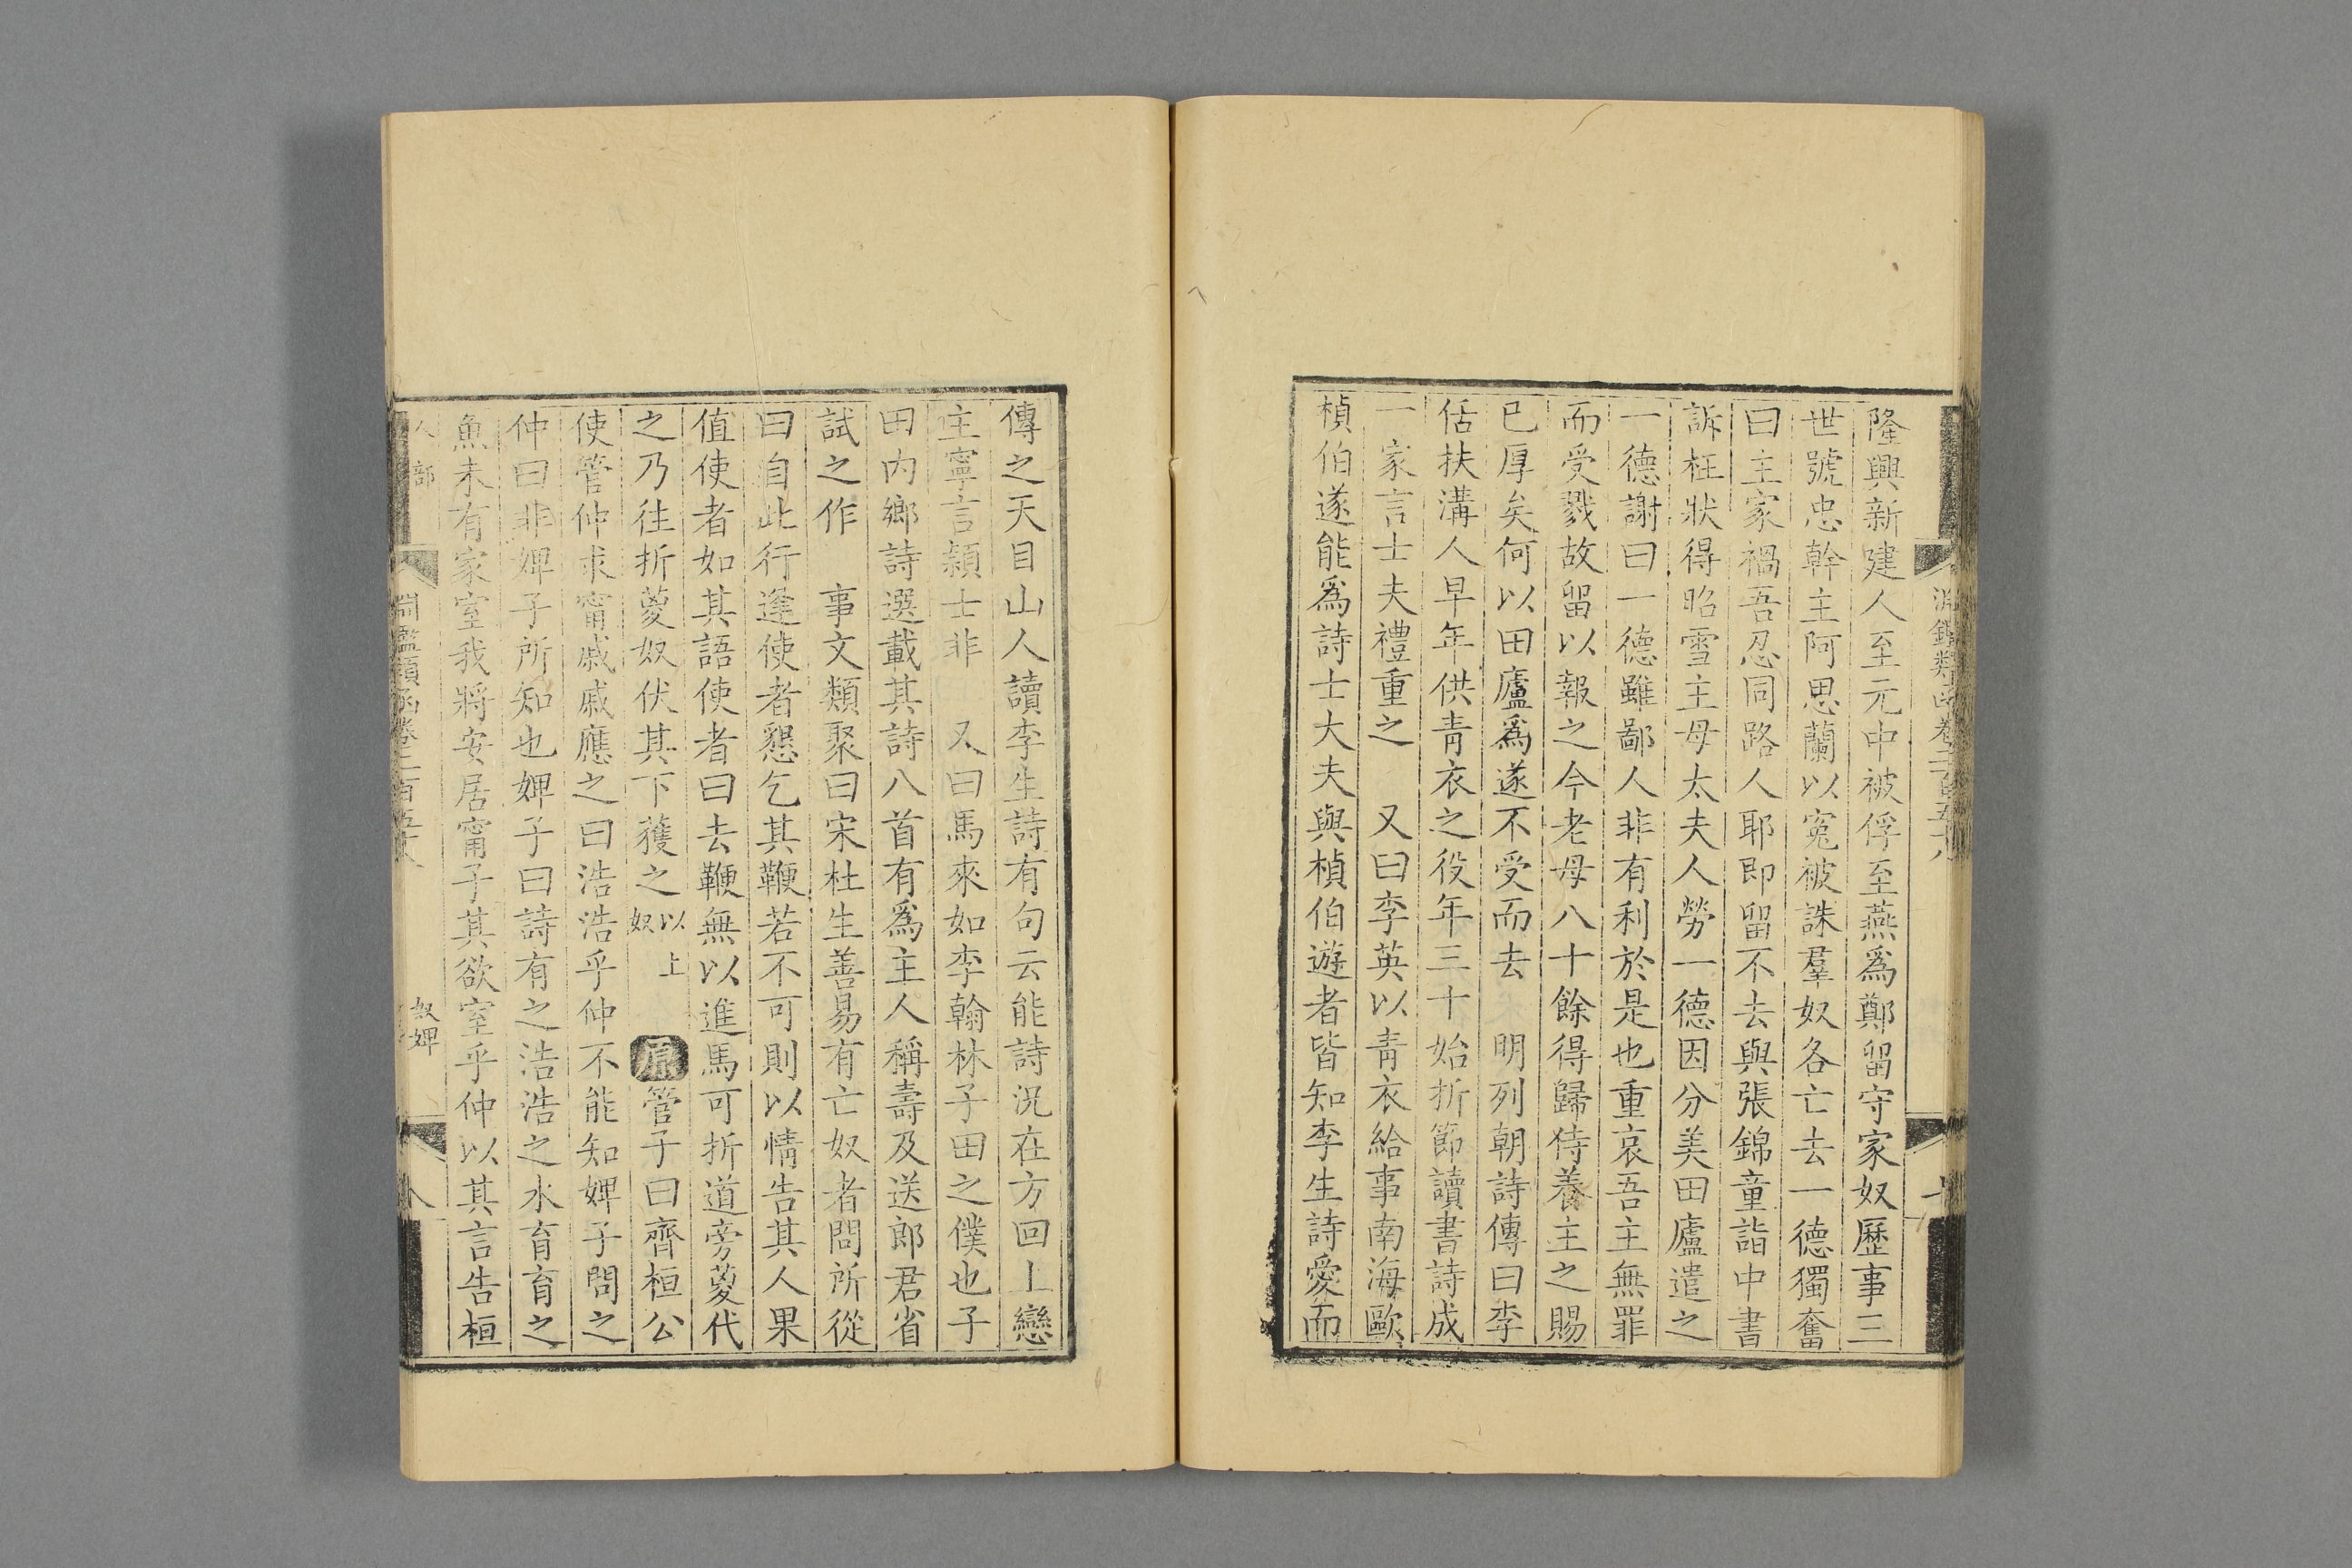 淵鑑類函卷二百五十八
七
隆興新建人至元中被俘至燕爲鄭留守家奴歷事三
世號忠幹主阿思蘭以寃被誅羣奴各亡去一德獨奮
曰主家禍吾忍同路人耶即留不去與張錦童詣中書
訴枉狀得昭雪主母太夫人勞一德因分美田廬遣之
一德謝曰一德雖鄙人非有利於是也重哀吾主無罪
而受戮故留以報之今老母八十餘得歸侍養主之賜
已厚矣何以田廬爲遂不受而去 明列朝詩傳曰李
佸扶溝人早年供青衣之役年三十始折節讀書詩成
一家言士夫禮重之 又曰李英以青衣給事南海歐
楨伯遂能爲詩士大夫與楨伯遊者皆知李生詩愛而
傳之天目山人讀李生詩有句云能詩況在方回上戀
主寧言穎士非 又曰馬來如李翰林子田之僕也子
田内鄉詩選載其詩八首有爲主人稱壽及送郎君省
試之作 事文類聚曰宋杜生善昜有亡奴者問所從
曰自此行逢使者懇乞其鞭若不可則以情告其人果
值使者如其語使者曰去鞭無以進馬可折道旁葼代
之乃往折葼奴伏其下獲之以上奴 原管子曰齊桓公
使管仲求甯戚戚應之曰浩浩乎仲不能知婢子問之
仲曰非婢子所知也婢子曰詩有之浩浩之水育育之
魚未有家室我將安居甯子其欲室乎仲以其言告桓
人部
淵鑑類函卷二百五十八
奴婢
八